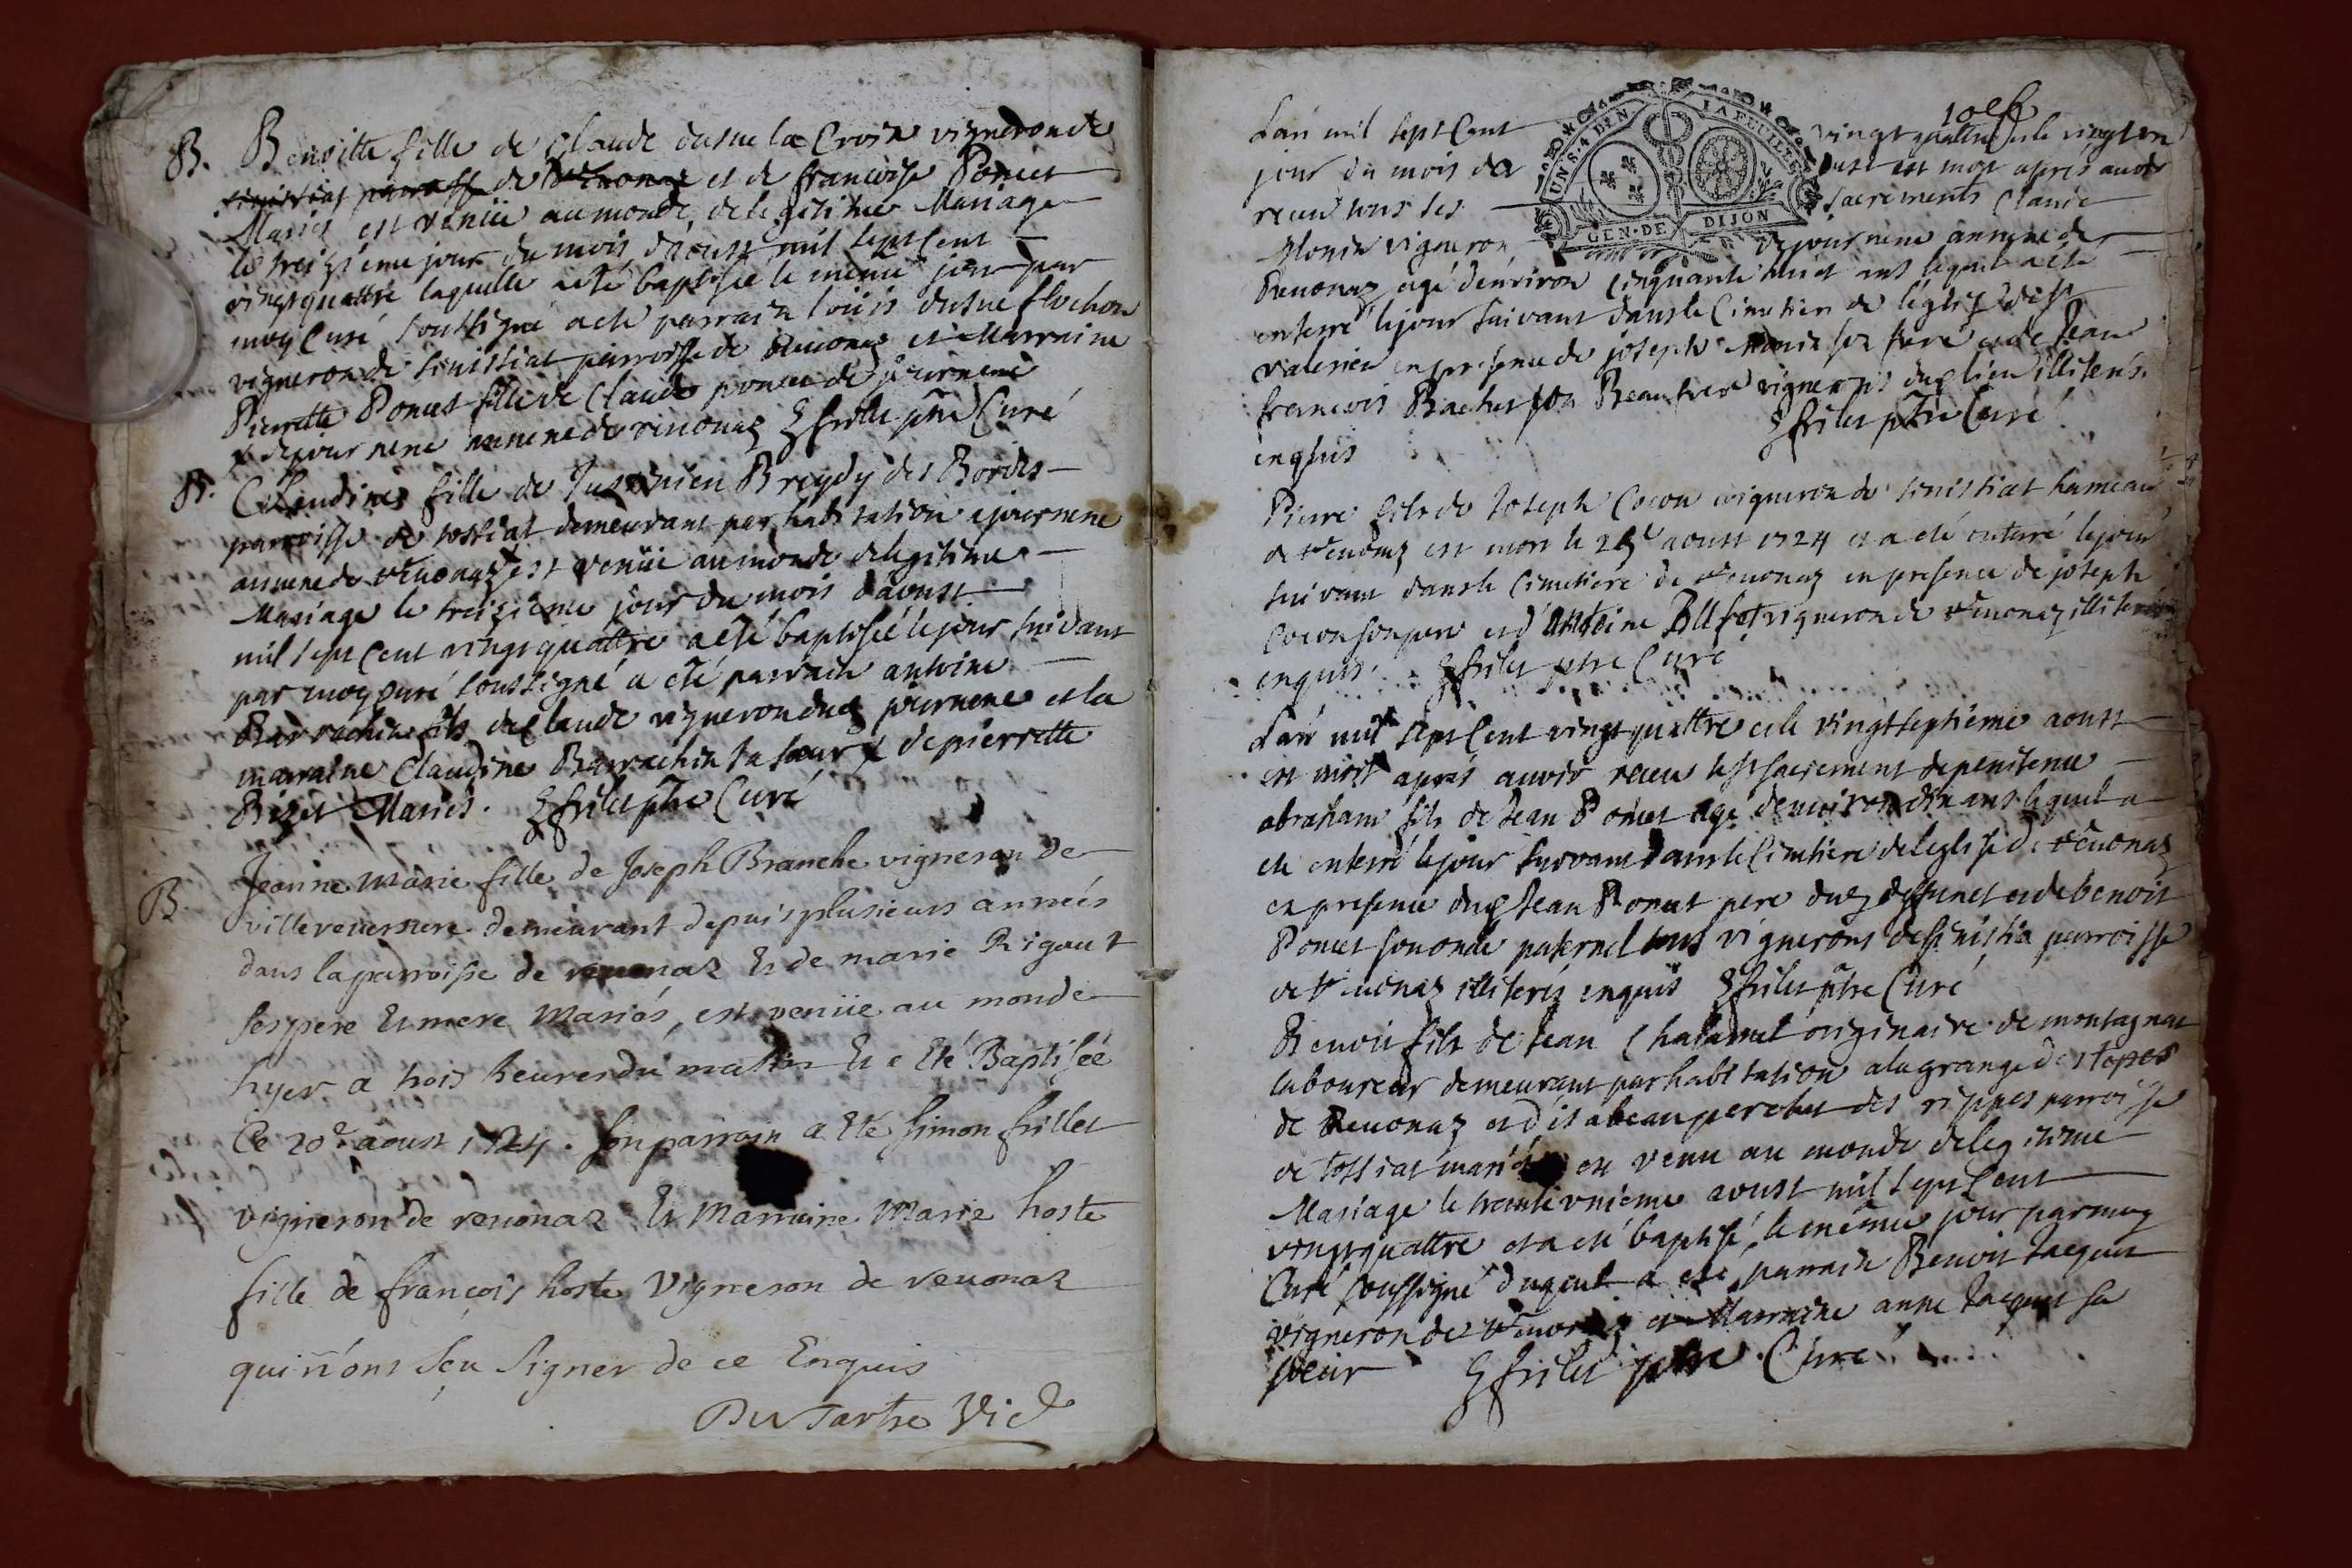 B. Benoitte fille de Claude dusne la Croix vigneron de
sinissiat parroisse de Reuonaz et de francoise Poncet
Mariés est venüe au monde de legitime Mariage
le treiziéme jour du mois d'aoust mil sept cent
vingt quattre laquelle a eté baptisée le meme jour par
moy Curé soussigné a eté parrain loüis dusne flochon
vigneron de sinissiat parroisse de Reuonaz et Marraine
Pierrette Poncet fille de Claude poncet de journene
x de journene annexe de reuonaz frilet ptre Curé
B. Claudine fille de Breydy des Bordes
parroisse de tossiat demeurant par habitation a journene
annexe de reuonaz est venüe au monde de legitime
Mariage le treizieme jour du mois d'aoust
mil sept cent vingt quattre a eté baptisée le jour suivant
par moy curé soussigné a eté parrain antoine
Barrachin fils de Claude vigneron dud journene et la
marraine Claudine Barrachin sa soeur x de pierrette
Bizet Mariés. frilet ptre Curé
B. Jeanne Marie fille de Joseph Branche vigneron de
villereuersure demeurant depuis plusieurs années
dans la parroisse de reuonaz Et de marie Rigaut
ses pere Et mere Mariés, est venüe au monde
hyer a trois heures du matin Et a Eté Baptisée
Ce 20e aoust 1724. son parrain a Eté simon frillet
vigneron de reuonaz Et Marraine Marie hoste
fille de françois hoste Vigneron de reuonaz
qui n'ont sçu signer de ce Enquis
Du Tartre Vic
10e f
L'an mil sept Cent vingt quattre et le vingt un
jour du mois d'aoust est mort aprés auoir
receu tous les sacrements Claude
Monin vigneron de journene annexe de
UN S. 4 DEN LA FEUILLE
GEN. DE DIJON
Reuonaz agé d'enuiron cinquante huit ans lequel a eté
enterré le jour suivant dans le Cimetiere de l'eglise de st
valerien en presence de joseph Monin son frere et de Jean
francois vignerons dud lieu illiterés
enquis frilet ptre Curé
Pierre fils de Joseph Cocon vigneron de sinissiat hameau
de Reuonaz est mort le aoust 1724 et a eté enterré le jour
suivant dans le Cimetiere de Reuonaz en presence de joseph
Cocon son pere et d'antoine vigneron de Reuonaz illiterés
enquis. frilet ptre Curé
L'an mil sept Cent vingt quattre et le vingt septieme aoust
est mort aprés auoir receu le st sacrement de penitence
abraham fils de Jean Poncet agé d'enuiron dix ans lequel a
eté enterré le jour suivant dans le Cimetiere de l'eglise de Reuonaz
en presence dud Jean Poncet pere dud deffunct et de benoit
Poncet son oncle paternel tous vignerons de sinissia parroisse
de Reuonaz illiterés enquis frilet ptre Curé
Benoit fils de Jean Chalamel originaire de montagnat
laboureur demeurant par habitation a la grange des
de Reuonaz et d'isabeau des rippes parroisse
de tossiat mariés est venu au monde de legitime
Mariage le trente unieme aoust mil sept Cent
vingt quattre et a eté baptisé le même jour par moy
Curé soussigné duquel a eté parrain Benoit Jaquet
vigneron de Reuonaz et Marraine anne Jaquet sa
soeur frilet ptre Curé